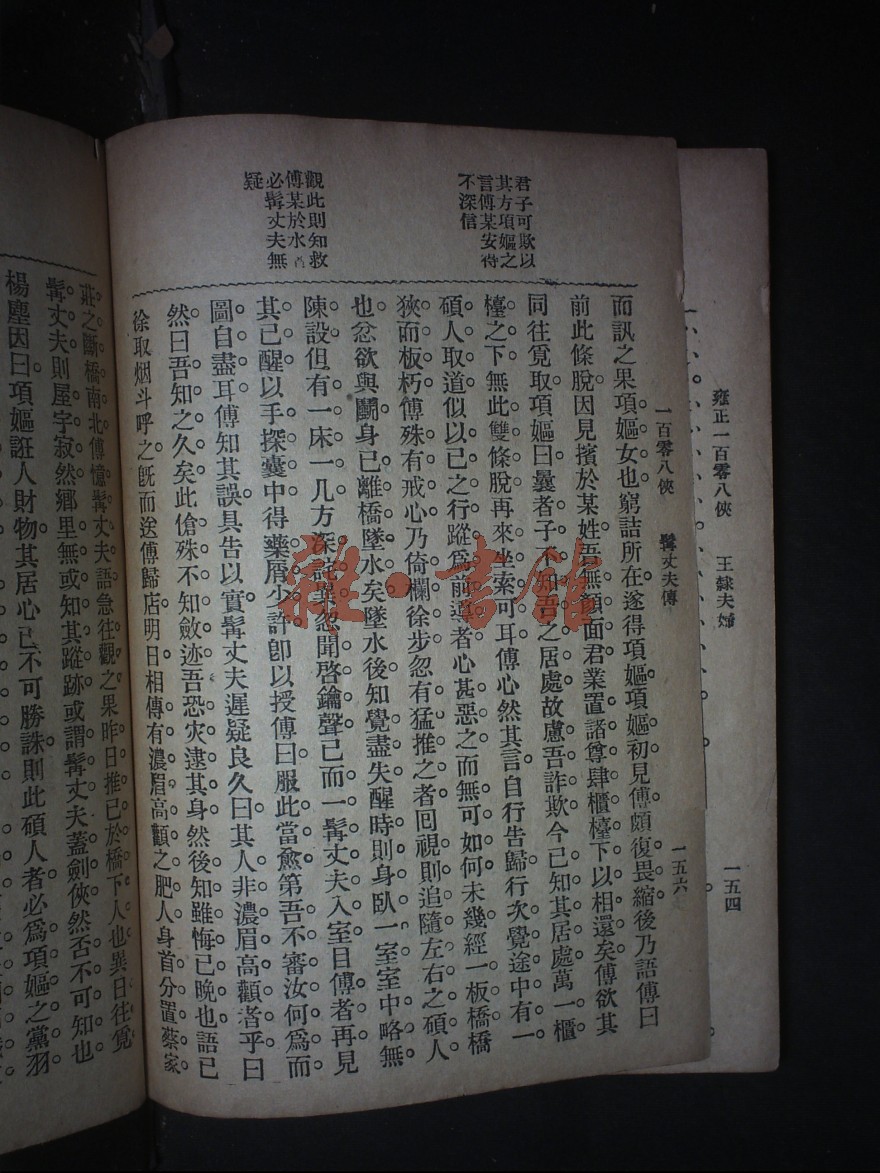 雍正一百零八俠
王隸夫婦
一五四
一百零八俠
髯丈夫傳
一五六
君子可欺以
其方項嫗之
言傅某安得
不深信
觀此則知救
傅某於水者
必髯丈夫無
疑
而訊之果項嫗女也窮詰所在遂得項嫗項嫗初見傅頗復畏縮後乃語傅曰
前此條脫因見擯於某姓吾無顏面君業置諸尊肆櫃檯下以相還矣傅欲其
同往覓取項嫗曰曩者子不知吾之居處故慮吾詐欺今已知其居處萬一櫃
檯之下無此雙條脫再來坐索可耳傅心然其言自行告歸行次覺途中有一
碩人取道似以己之行蹤爲前導者心甚惡之而無可如何未幾經一板橋橋
狹而板朽傅殊有戒心乃倚欄徐步忽有猛推之者囘視則追隨左右之碩人
也忿欲與鬭身已離橋墜水矣墜水後知覺盡失醒時則身臥一室室中略無
陳設但有一床一几方深詫異忽聞啓鑰聲已而一髯丈夫入室目傅者再見
其已醒以手探囊中得藥屑少許卽以授傅曰服此當愈第吾不審汝何爲而
圖自盡耳傅知其誤具告以實髯丈夫遲疑良久曰其人非濃眉高顴者乎曰
然曰吾知之久矣此傖殊不知斂迹吾恐災逮其身然後知雖悔已晩也語已
徐取烟斗呼之旣而送傅歸店明日相傳有濃眉高顴之肥人身首分置蔡家
莊之斷橋南北傅憶髯丈夫語急往觀之果昨日推己於橋下人也異日往覓
髯丈夫則屋宇寂然鄉里無或知其蹤跡或謂髯丈夫蓋劍俠然否不可知也
楊塵因曰項嫗誑人財物其居心已不可勝誅則此碩人者必爲項嫗之黨羽
雜·書館